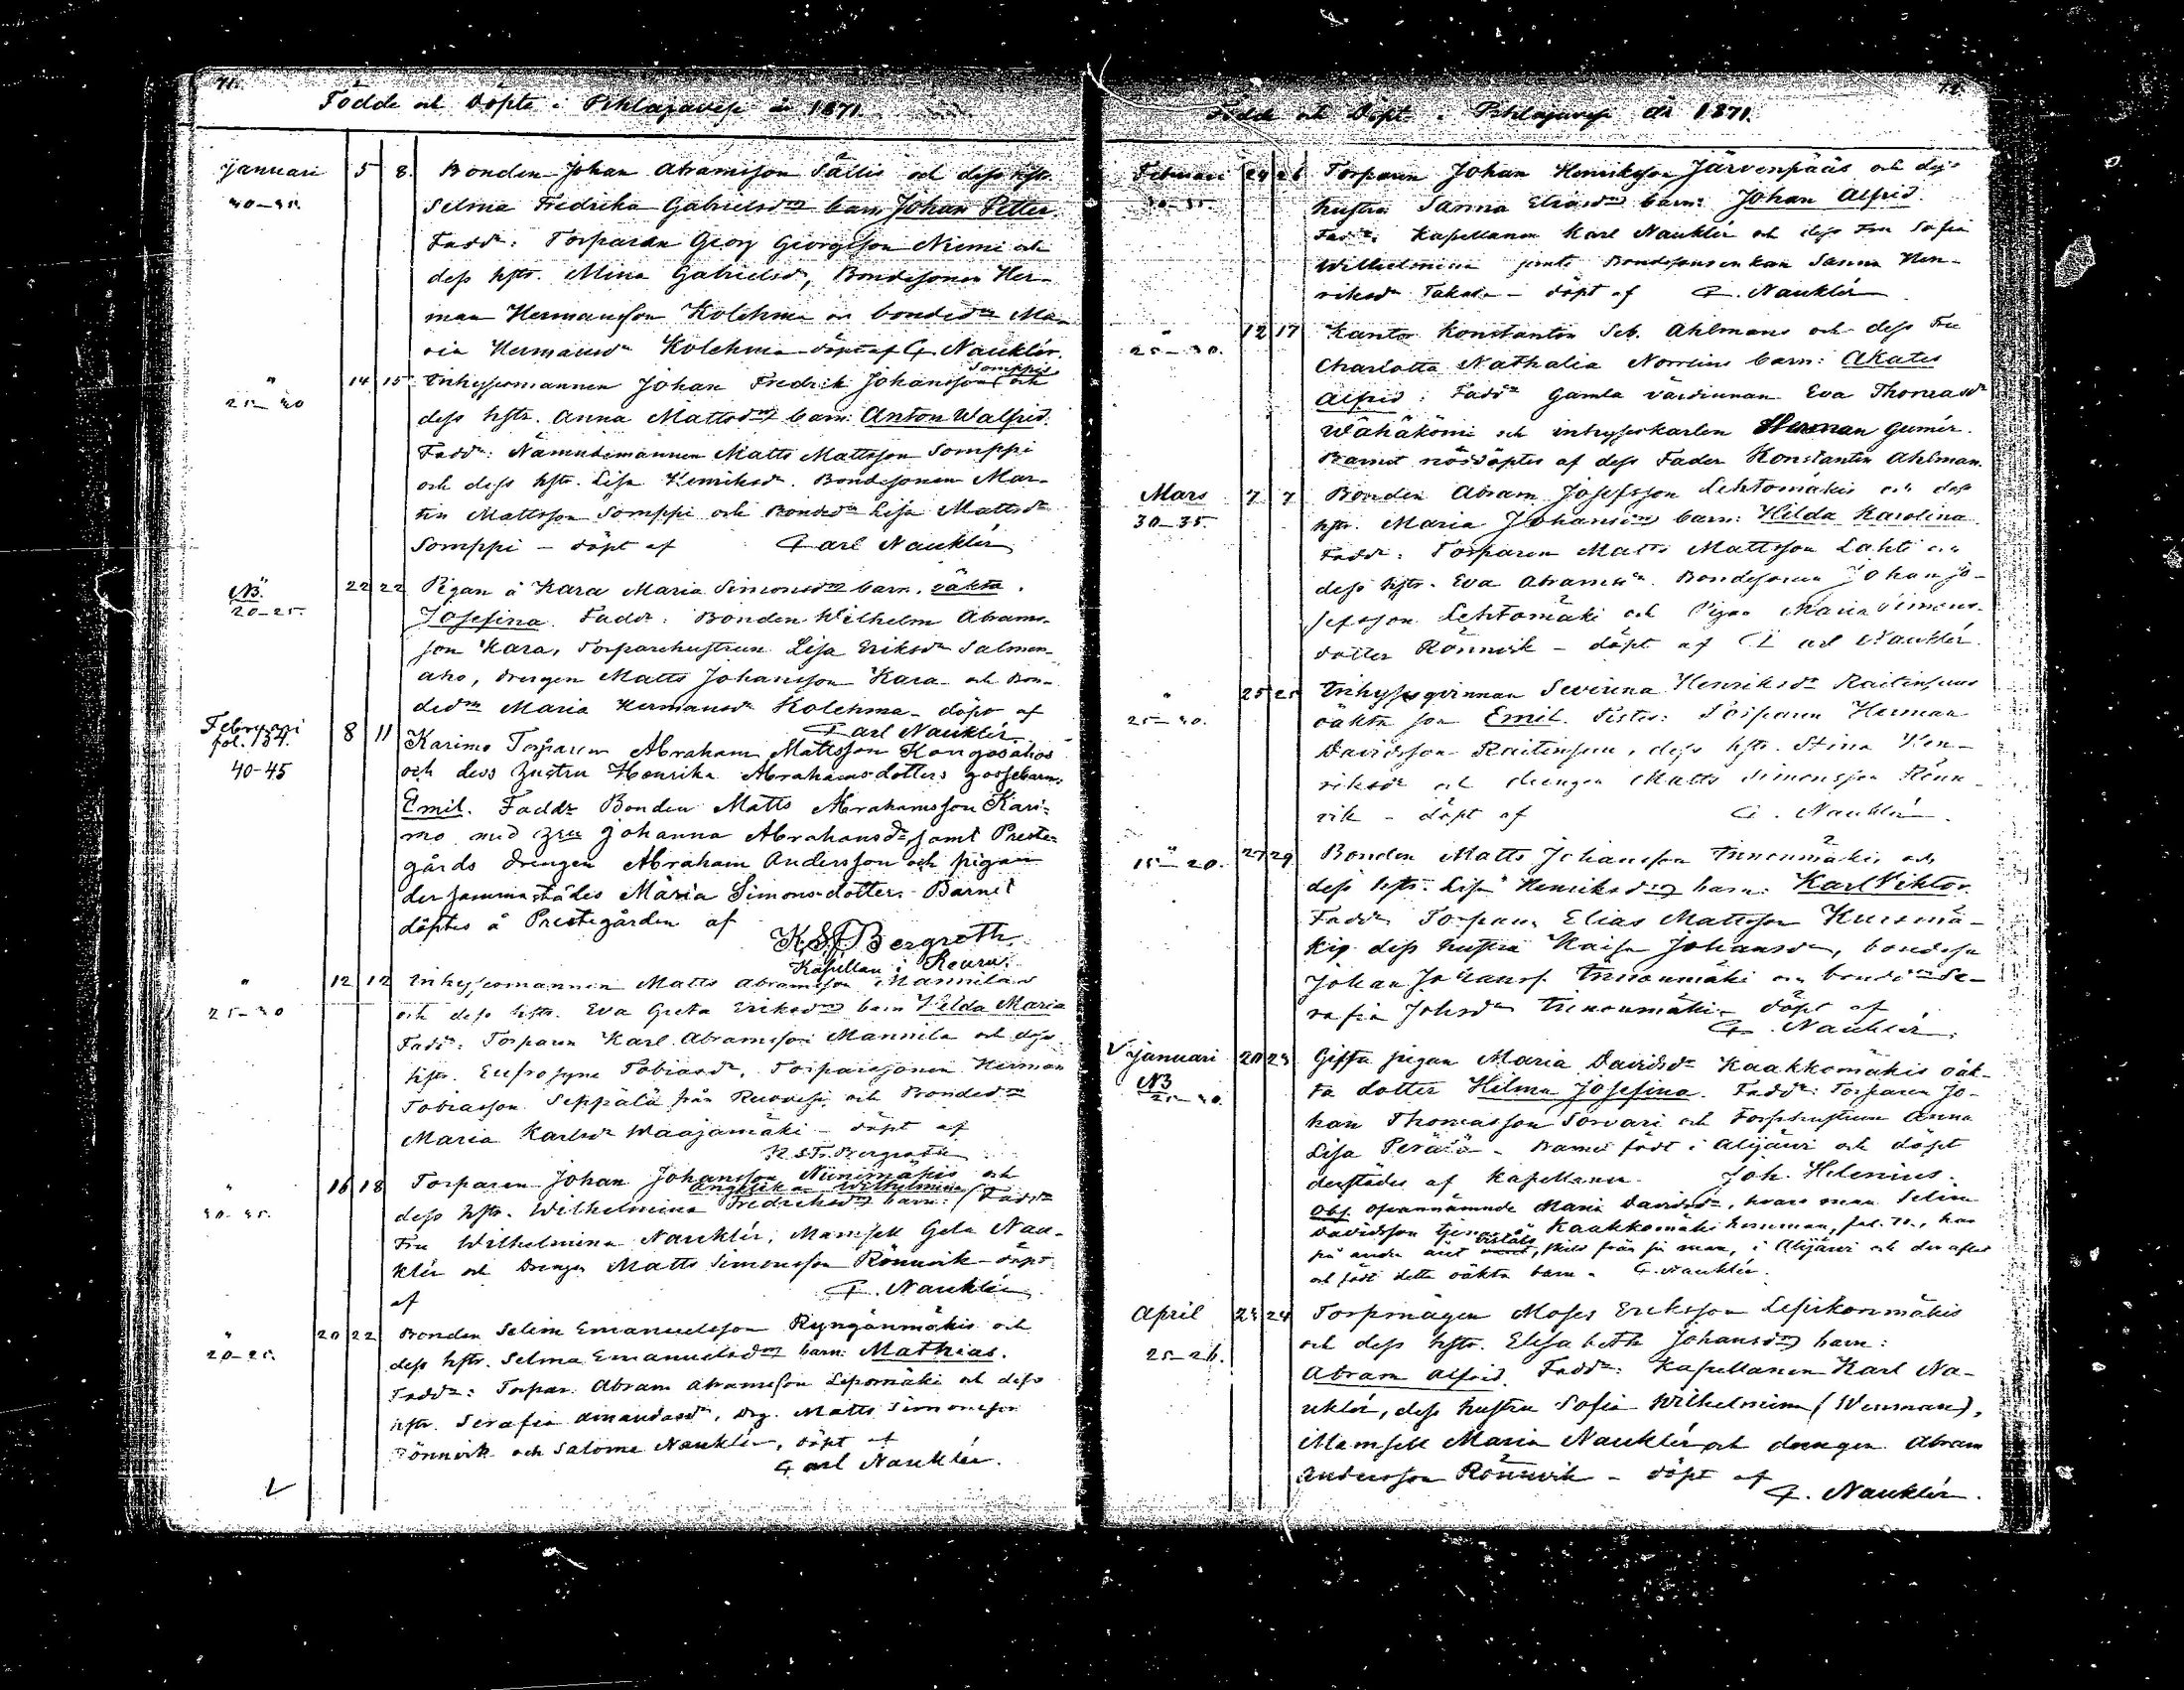 71.
Födde och Döpte i Pihlajavesi år 1871.
Januari 5 8. Bonden Johan Abramsson Sällis och dess hstr.
30-35. Selma Fredrika Gabrielsdrs barn Johan Petter.
Faddr: Torparen Georg Georgsson Niemi och
dess hstr. Mina Gabrielsdr, Bondesonen Her-
man Hermansson Kolehma och bondedr Ma-
ria Hermansdr Kolehma - döpt af C. Nauklér.
" 14 15 Inhysesmannen Johan Fredrik Johansson Somppis och
25-30 dess hstr. Anna Mattsdrs barn: Anton Walfrid.
Faddr: Nämndemannen Matts Mattsson Somppi
och dess hstr. Lisa Henriksdr. Bondesonen Mar-
tin Mattsson Somppi och Bondedr Lisa Mattsdr
Somppi - döpt af Carl Nauklér
" 22 22 Pigan å Kara Maria Simonsdrs barn, oäkta.
NB. 20-25. Josefina. Faddr: Bonden Wilhelm Abrams-
son Kara, Torparehustrun Lisa Eriksdr Salmen-
aho, drengen Matts Johansson Kara och Bon-
dedr Maria Hermansdr Kolehma - döpt af
Carl Nauklér.
Februari 8 11 Karimo Torparen Abraham Mattsson Kangosahos
fol. 134.
40-45 och dess hustru Henrika Abrahamsdotters gossebarn:
Emil. Faddr Bonden Matts Abrahamsson Kari-
mo med hru Johanna Abrahamsdr, samt Preste-
gårds Drengen Abraham Andersson och pigan
dersammastädes Maria Simonsdotter. Barnet
döptes å Prestegården af
K S F Bergroth
Kapellan i Keuru.
" 12 12 Inhysesmannen Matts Abramsson Mannilas
25-30 och dess hstr. Eva Greta Eriksdrs barn Hilda Maria
Faddr: Torparen Karl Abramsson Mannila och dess
hstr. Eufrosyne Tobiasdr, Torparesonen Herman
Tobiasson Seppälä från Ruovesi och Bondedr
Maria Karlsdr Waajamäki - döpt af
K S Fr. Bergroth
" 16 18 Torparen Johan Johansson Niinimäkis och
30-35. dess hstr. Wilhelmina Fredriksdrs barn: Angelika Wilhelmina Faddr
Fru Wilhelmina Nauklér, Mamsell Gela Nau-
klér och Drengen Matts Simonsson Rönnvik - döpt
af C. Nauklér
" 20 22 Bonden Selim Emanuelsson Ryngänmäkis och
20-25. dess hstr. Selma Emanuelsdrs barn: Mathias.
Faddr: Torpar. Abram Abramsson Lepomäki och dess
hstr. Serafia Amandasdr, Drg. Matts Simonsson
Rönnvik och Salome Nauklér, döpt af
Carl Nauklér.
72.
Födde och Döpte i Pihlajavesi år 1871.
Februari 24 26 Torparen Johan Henriksson Järvenpääs och dess
30-35. hustru Sanna Eliasdrs barn: Johan Alfrid.
Faddr: Kapellanen Karl Nauklér och dess Fru Sofia
Wilhelmina jemte Bondesonenkan Sanna Hen-
riksdr Takala - döpt af C. Nauklér
" 12 17 Kantor Konstantin Seb. Ahlmans och dess Fru
25-30. Charlotta Nathalia Norrlins barn: Akates
Alfrid: Faddr Gamla värdinnan Eva Thomasdr
Wähäkömi och inhyseskarlen Herman Gumér.
Barnet nöddöptes af dess Fader Konstantin Ahlman.
Mars 7 7 Bonden Abram Josefsson Lehtomäkis och dess
30-35 hstr. Maria Johansdrs barn: Hilda Karolina.
Faddr: Torparen Matts Mattsson Lahti och
dess hstr. Eva Abramsdr. Bondesonen Johan Jo-
sefsson Lehtomäki och Pigan Maria Simons-
dotter Rönnvik - döpt af Carl Nauklér.
" 25 25 Inhysesqvinnan Sevinna Henriksdr Raitinsuus
25-30. oäkta son Emil. Testes: Torparen Herman
Davidsson Raitinsuu, dess hstr. Stina Hen-
riksdr och drengen Matts Simonsson Rönn-
vik - döpt af C. Nauklér.
" 27 29 Bonden Matts Johansson Innonmäkis och
15-20. dess hstr. Lisa Henriksdrs barn: Karl Viktor.
Faddr Torparen Elias Mattsson Kuusmä-
ki, dess hustru Kaisa Johansdr, bondeson
Johan Johanss. Innonmäki och bondedr Se-
rafia Johsdr Innonmäki - döpt af
C. Nauklér.
Januari 20 23 Gifta pigan Maria Davidsdr Kaakkomäkis oäk-
NB 25-30. ta dotter Hilma Josefina. Faddr: Torparen Jo-
han Thomasson Sorvari och Torphustrun Anna
Lisa Perälä. Barnet födt i Alajärvi och döpt
derstädes af Kapellanen Joh. Helenius.
Obs. Ofvannämnde Maria Davidsdr, hvars man Selim
Davidsson tjenar å Kaakkomäki hemman, fol. 70., har
på andra året vistats, skild från sin man, i Alajärvi och der aflat
och födt detta oäkta barn. C. Nauklér.
April 23 24 Torpmågen Moses Eriksson Lepikonmäkis
25-26. och dess hstr. Elisabeth Johansdrs barn:
Abram Alfrid. Faddr: Kapellanen Karl Na-
uklér, dess hustru Sofia Wilhelmina (Wenman),
Mamsell Maria Nauklér och drengen Abram
Andersson Rönnvik - döpt af
C. Nauklér.